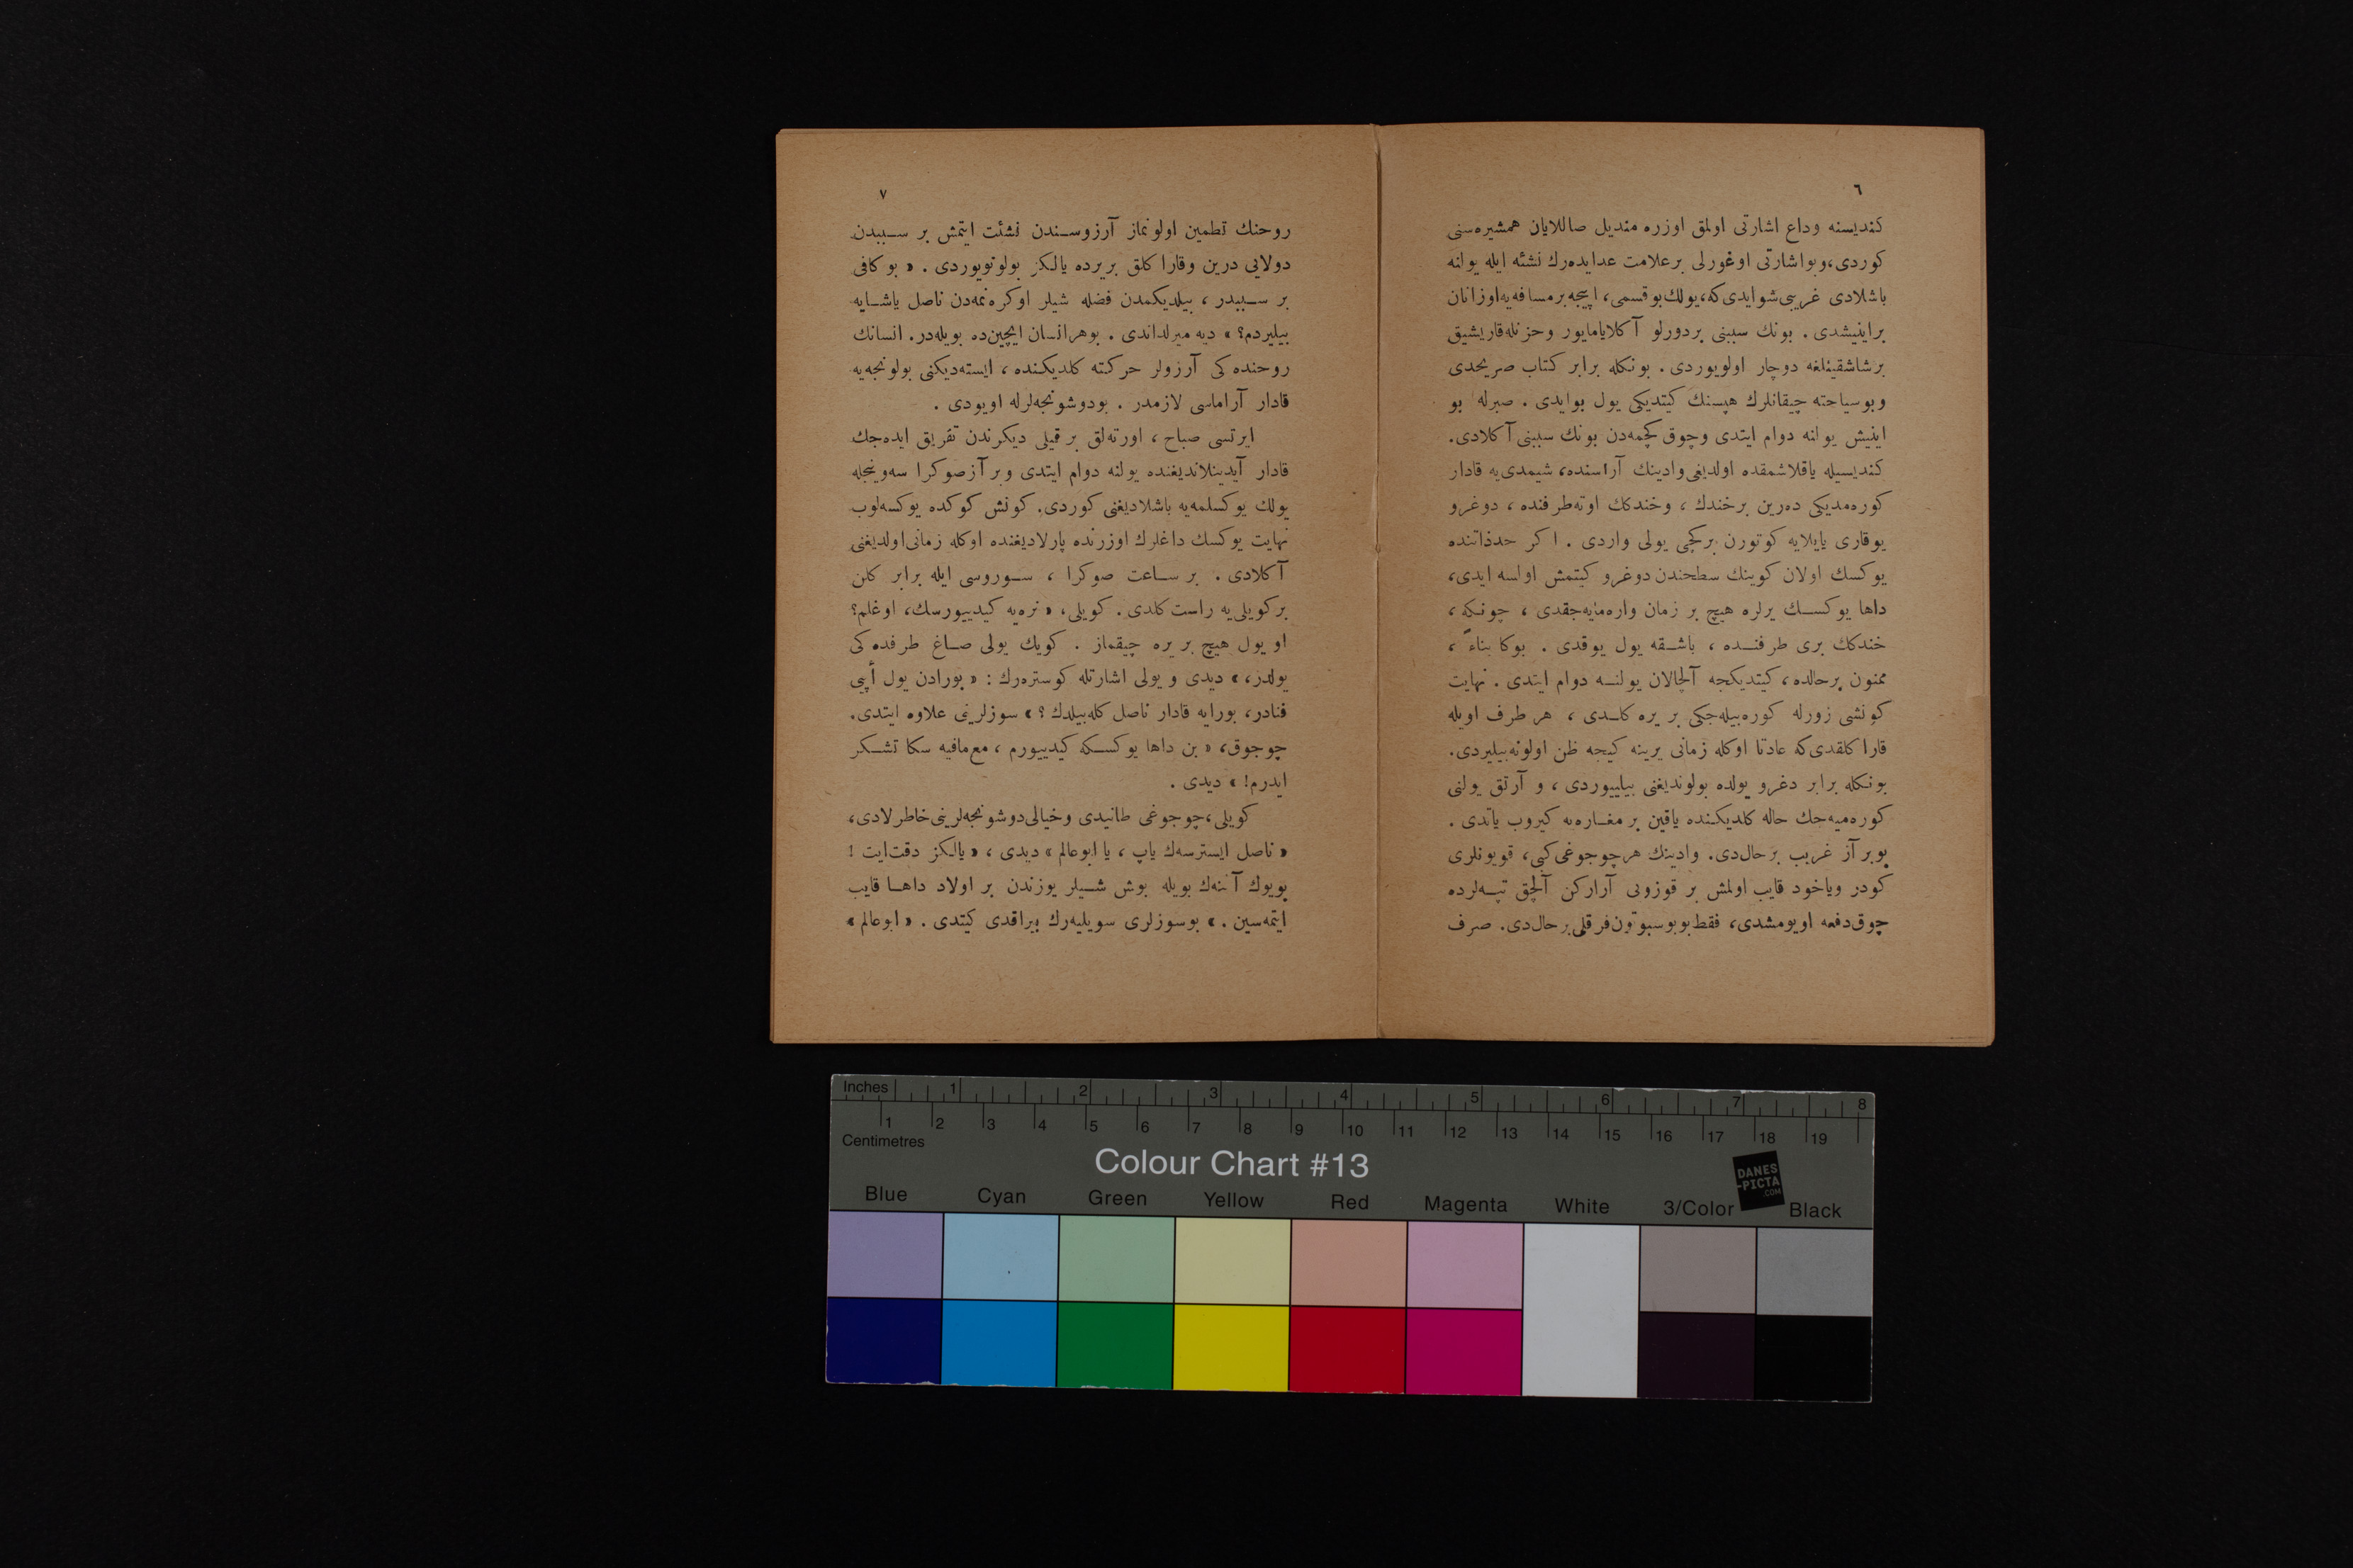 ٦
كنديسنه وداع اشارتى اولمق اوزره منديل صاللايان همشيره‌سنى
كوردى، وبواشارتى اوغورلى برعلامت عدايده‌رك نشئه ايله يولنه
باشلادى غريبى شوايدى‌كه، يولك بوقسمى، اييجه برمسافه‌يه اوزانان
براينيشدى . بونك سببنى بردورلو آكلايامايور وحزنله قاريشيق
برشاشقينلغه دوچار اولويوردى . بونكله برابر كتاب صريحدى
وبوسياحته چيقانلرك هپسنك كيتديكى يول بوايدى . صبرله بو
اينيش يولنه دوام ايتدى وچوق كچمه‌دن بونك سببنى آكلادى.
كنديسيله ياقلاشمقده اولديغى وادينك آراسنده، شيمدى‌يه قادار
كوره‌مديكى ده‌رين برخندك ، وخندكك اوته‌طرفنده ، دوغرو
يوقارى يايلايه كوتورن بركچى يولى واردى . اكر حدذاتنده
يوكسك اولان كوينك سطحندن دوغرو كيتمش اولسه ايدى،
داها يوكسك يرلره هيچ بر زمان واره‌مايه‌جقدى ، چونكه ،
خندكك برى طرفنده ، باشقه يول يوقدى . بوكا بناءً ،
ممنون برحالده، كيتديكجه آلچالان يولنه دوام ايتدى . نهايت
كونشى زورله كوره‌بيله‌جكى بر يره كلدى ، هر طرف اويله
قارا كلقدى‌كه عادتا اوكله زمانى يرينه كيجه ظن اولونه‌بيليردى.
بونكله برابر دغرو يولده بولونديغنى بيلييوردى ، و آرتق يولنى
كوره‌ميه‌جك حاله كلديكنده ياقين بر مغاره‌يه كيروب ياتدى .
بوبر آز غريب برحال‌دى. وادينك هرچوجوغى‌كبى، قويونلرى
كودر وياخود قايب اولمش بر قوزويى آراركن آلچق تپه‌لرده
چوق‌دفعه اويومشدى، فقط بوبوسبوتون‌فرقلى برحال‌دى. صرف
٧
روحنك تطمين اولونماز آرزوسندن نشئت ايتمش بر سببدن
دولايى درين وقارا كلق بريرده يالكز بولونويوردى . « بوكافى
بر سببدر ، بيلديكمدن فضله شيلر اوكره‌نمه‌دن ناصل ياشايه
بيليردم؟ » ديه ميرلداندى . بوهرانسان ايچين‌ده بويله‌در. انسانك
روحنده كى آرزولر حركته كلديكنده ، ايسته‌ديكنى بولونجه‌يه
قادار آراماسى لازمدر . بودوشونجه‌لرله اويودى .
ايرتسى صباح ، اورته‌لق بر قيلى ديكرندن تفريق ايده‌جك
قادار آيدينلانديغنده يولنه دوام ايتدى وبر آز صوكرا سه‌وينجله
يولك يوكسلمه‌يه باشلاديغنى كوردى. كونش كوكده يوكسه‌لوب
نهايت يوكسك داغلرك اوزرنده پارلاديغنده اوكله زمانى‌اولديغنى
آكلادى . بر ساعت صوكرا ، سوروسى ايله برابر كلن
بركويلى‌يه راست كلدى . كويلى، « نره‌يه كيدييورسك، اوغلم؟
او يول هيچ بر يره چيقماز . كويك يولى صاغ طرفده كى
يولدر، » ديدى و يولى اشارتله كوستره‌رك : « بورادن يول أپى
فنادر، بورايه قادار ناصل كله‌بيلدك ؟ » سوزلرينى علاوه ايتدى.
چوجوق، « بن داها يوكسكه كيدييورم ، مع‌مافيه سكا تشكر
ايدرم! » ديدى .
كويلى، چوجوغى طانيدى وخيالى‌دوشونجه‌لرينى‌خاطرلادى،
« ناصل ايسترسه‌ك ياپ ، يا ابوعالم » ديدى ، « يالكز دقت‌ايت !
بويوك آننه‌ك بويله بوش شيلر يوزندن بر اولاد داها قايب
ايتمه‌سين . » بوسوزلرى سويليه‌رك بيراقدى كيتدى . « ابوعالم »
Inches 1 2 3 4 5 6 7 8
1 2 3 4 5 6 7 8 9 10 11 12 13 14 15 16 17 18 19
Centimetres
Colour Chart #13
DANES
-PICTA
.COM
Blue Cyan Green Yellow Red Magenta White 3/Color Black